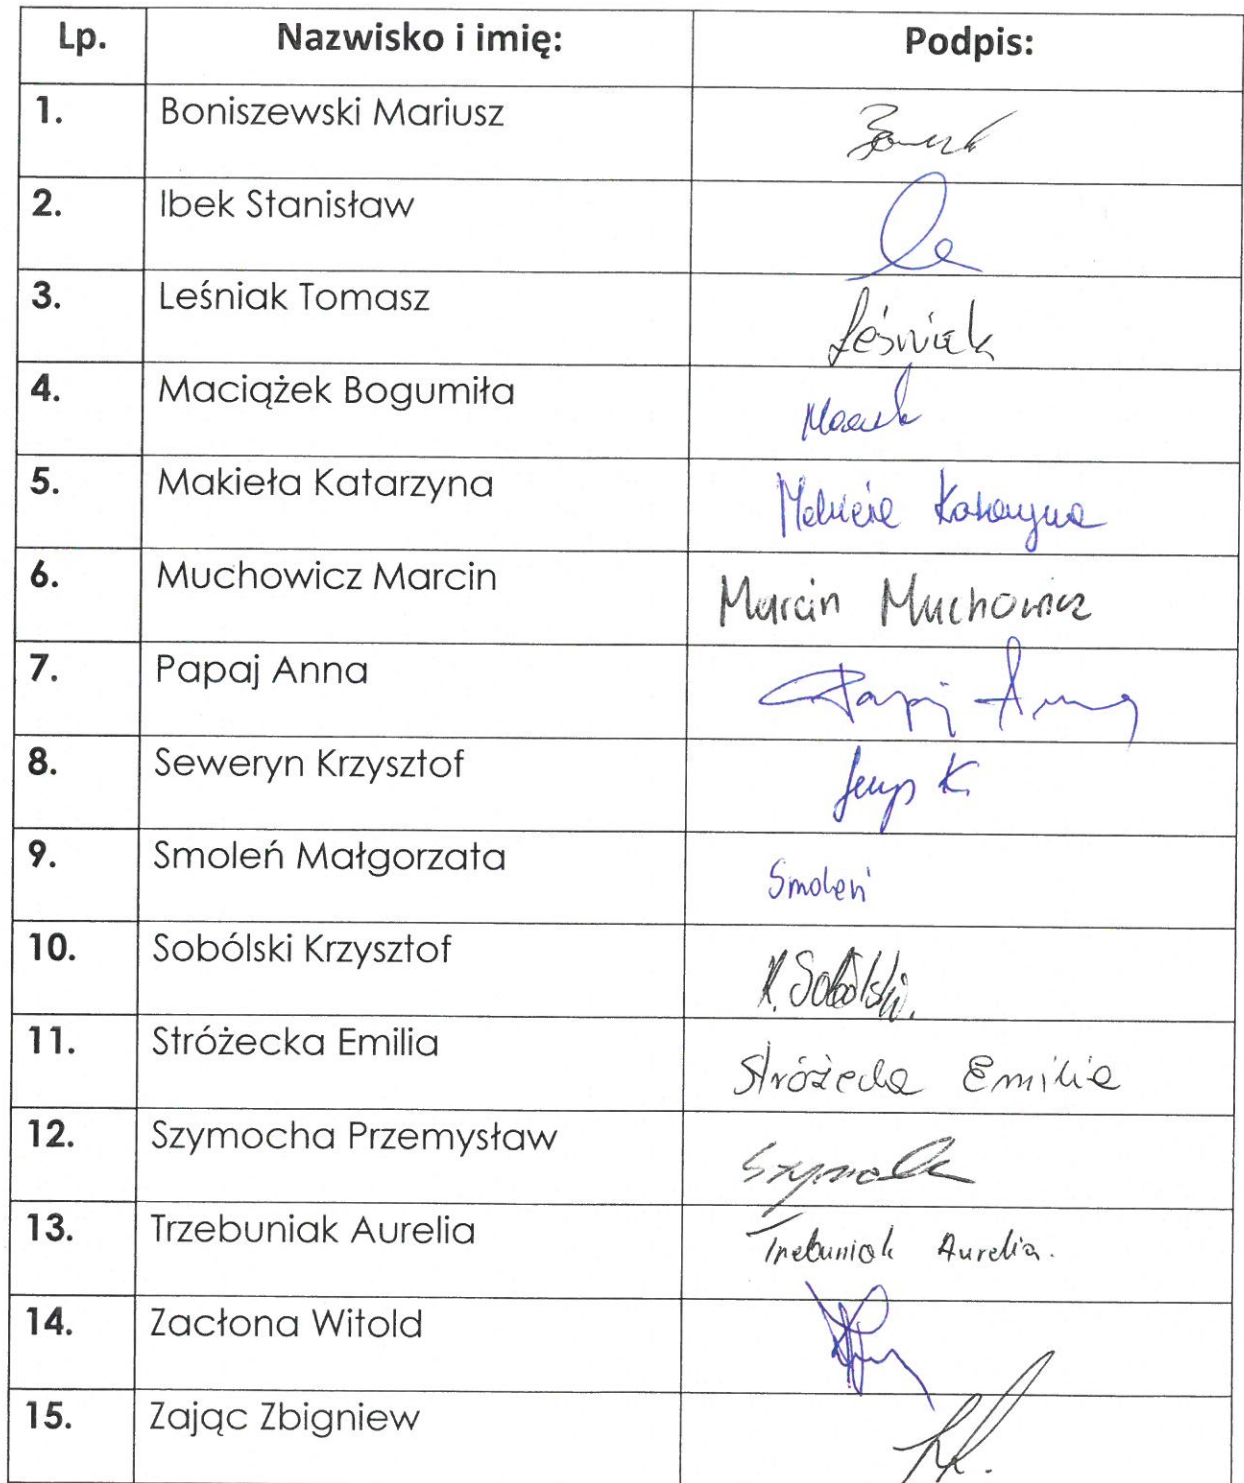 Lp. Nazwisko i imię: Podpis:
1. Boniszewski Mariusz
2. Ibek Stanisław
3. Leśniak Tomasz Leśniak
4. Maciążek Bogumiła
5. Makieła Katarzyna Makieła Katarzyna
6. Muchowicz Marcin Marcin Muchowicz
7. Papaj Anna Papaj Anna
8. Seweryn Krzysztof
9. Smoleń Małgorzata Smoleń
10. Sobólski Krzysztof K. Sobólski.
11. Stróżecka Emilia Stróżecka Emilia
12. Szymocha Przemysław
13. Trzebuniak Aurelia Trzebuniak Aurelia.
14. Zacłona Witold
15. Zając Zbigniew